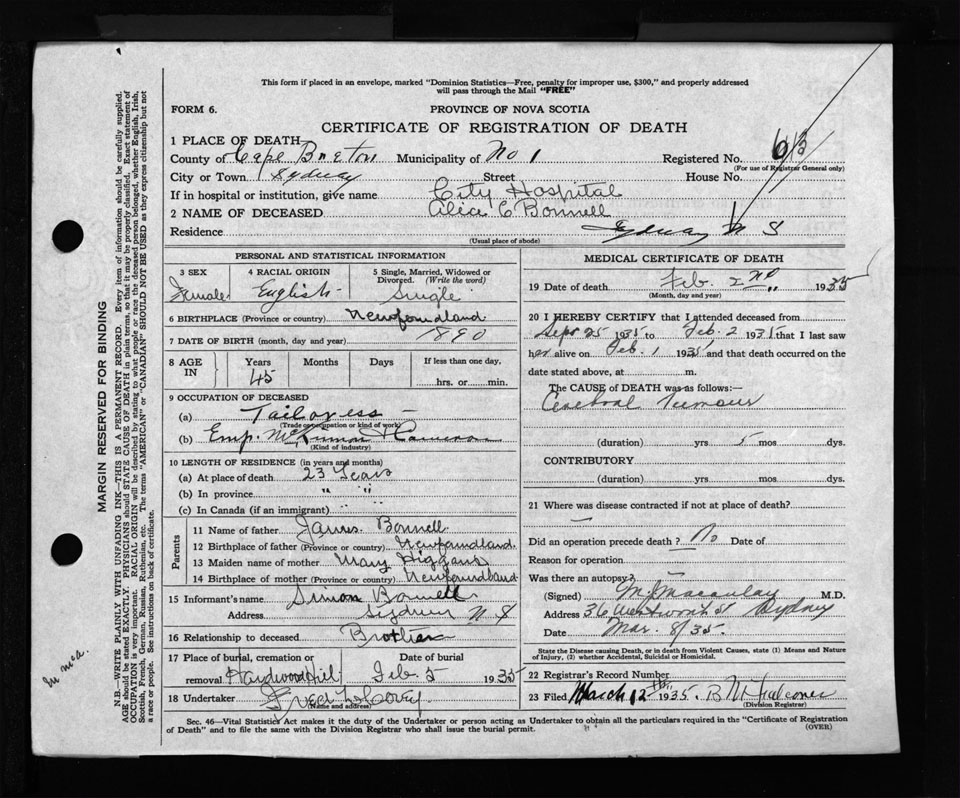 This form if placed in an envelope, marked "Dominion Statistics—Free, penalty for improper use, $300," and properly addressed
will pass through the Mail "FREE"
FORM 6.
PROVINCE OF NOVA SCOTIA
CERTIFICATE OF REGISTRATION OF DEATH
1 PLACE OF DEATH
County of Cape Breton Municipality of No 1 Registered No. 613
(For use of Registrar General only)
City or Town Sydney Street House No.
If in hospital or institution, give name City Hospital
2 NAME OF DECEASED Alice C Bonnell
Residence Sydney N S
(Usual place of abode)
PERSONAL AND STATISTICAL INFORMATION
3 SEX 4 RACIAL ORIGIN 5 Single, Married, Widowed or
Divorced. (Write the word)
Female English Single
6 BIRTHPLACE (Province or country) Newfoundland
7 DATE OF BIRTH (month, day and year) 1890
8 AGE IN Years Months Days If less than one day,
45 hrs. or min.
9 OCCUPATION OF DECEASED
(a) Tailoress —
(Trade occupation or kind of work)
(b) Emp. McKinnon & Cameron
(Kind of industry)
10 LENGTH OF RESIDENCE (in years and months)
(a) At place of death 23 Years
(b) In province " "
(c) In Canada (if an immigrant) " "
Parents
11 Name of father James Bonnell
12 Birthplace of father (Province or country) Newfoundland
13 Maiden name of mother Mary
14 Birthplace of mother (Province or country) Newfoundland
15 Informant's name Simon Bonnell
Address Sydney N S
16 Relationship to deceased Brother
17 Place of burial, cremation or Date of burial
removal Hardwood Hill Feb 5 1935
18 Undertaker
(Name and address)
MEDICAL CERTIFICATE OF DEATH
19 Date of death Feb. 2nd 1935
(Month, day and year)
20 I HEREBY CERTIFY that I attended deceased from
Sept 25 1935 to Feb. 2 1935 that I last saw
her alive on Feb. 1 1935 and that death occurred on the
date stated above, at m.
The CAUSE of DEATH was as follows:—
Cerebral Tumour
(duration) yrs 5 mos dys.
CONTRIBUTORY
(duration) yrs mos dys.
21 Where was disease contracted if not at place of death?
—
Did an operation precede death? No Date of
Reason for operation
Was there an autopsy? —
(Signed) M. J. Macaulay M.D.
Address 36 Wentworth St Sydney
Date Mar. 8/35.
State the Disease causing Death, or in death from Violent Causes, state (1) Means and Nature
of Injury, (2) whether Accidental, Suicidal or Homicidal.
22 Registrar's Record Number
23 Filed March 12th 1935. B M Falconer
(Division Registrar)
Sec. 46—Vital Statistics Act makes it the duty of the Undertaker or person acting as Undertaker to obtain all the particulars required in the "Certificate of Registration
of Death" and to file the same with the Division Registrar who shall issue the burial permit. (OVER)
MARGIN RESERVED FOR BINDING
N.B.—WRITE PLAINLY WITH UNFADING INK—THIS IS A PERMANENT RECORD. Every item of information should be carefully supplied.
AGE should be stated EXACTLY. PHYSICIANS should STATE CAUSE OF DEATH in plain terms, so that it may be properly classified. Exact statement of
OCCUPATION is very important. RACIAL ORIGIN will be described by stating to what people or race the deceased person belonged, whether English, Irish,
Scottish, French, German, Russian, Ruthenian, etc. The terms "AMERICAN" or "CANADIAN" SHOULD NOT BE USED as they express citizenship but not
a race or people. See instructions on back of certificate.